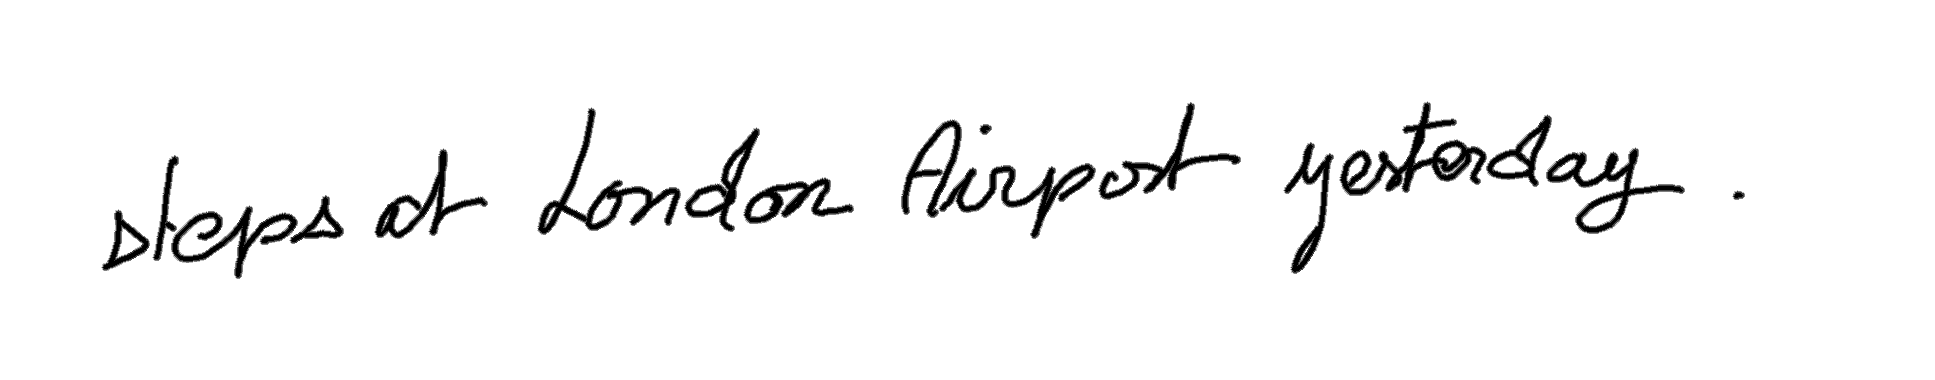 steps at London Airport yesterday .